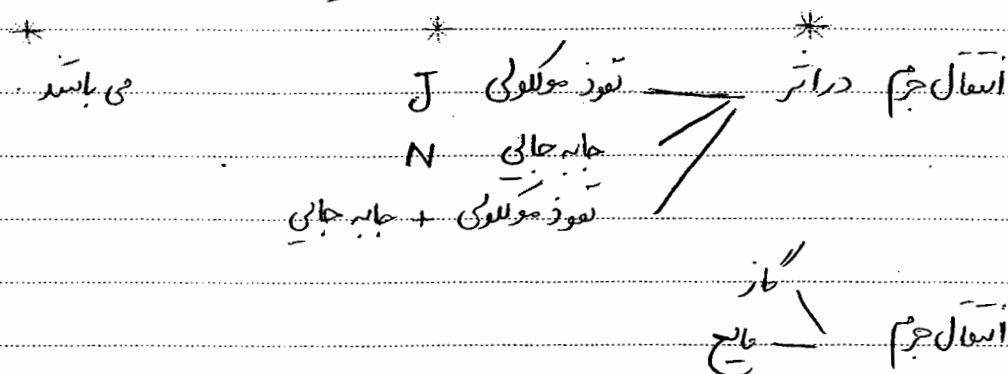 انتقال جرم در اثر نفوذ مولکولی J می باشد.
جابه جایی N
نفوذ مولکولی + جابه جایی
گاز
انتقال جرم مایع